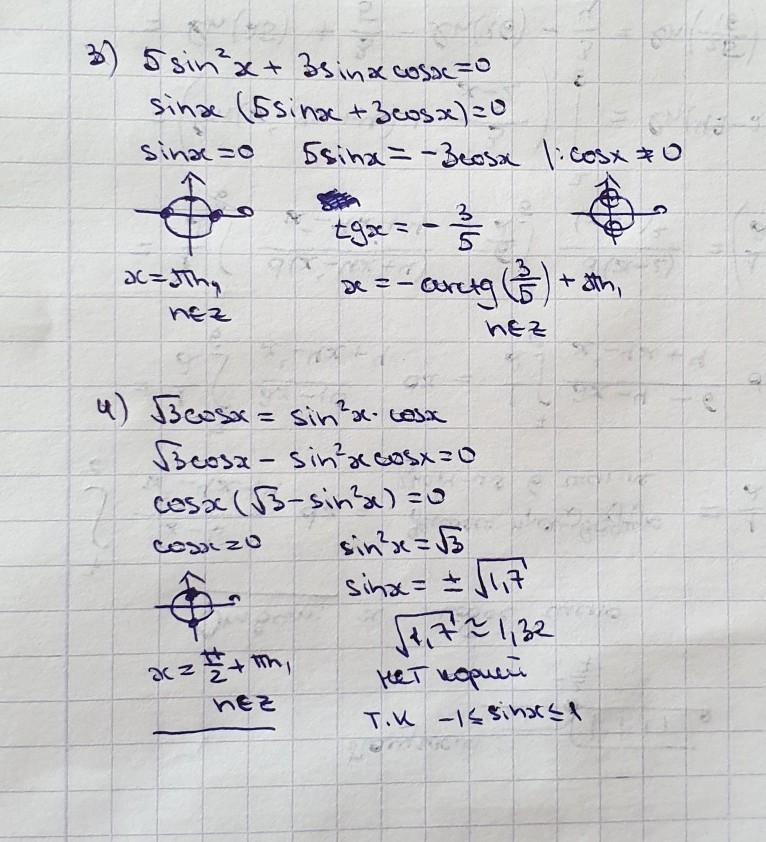 3) 5sin²x + 3sinx cosx=0
sinx (5sinx + 3cosx)=0
sinx=0 5sinx = -3cosx |:cosx ≠ 0
tgx = - 3/5
x=πn, x = -arctg(3/5) + πn,
n∈Z n∈Z
4) √3cosx = sin²x · cosx
√3cosx - sin²x cosx=0
cosx(√3-sin²x)=0
cosx=0 sin²x=√3
sinx= ±√1,7
√1,7 ≈ 1,32
x= π/2 + πn, нет корней
n∈Z т.к -1≤sinx≤1